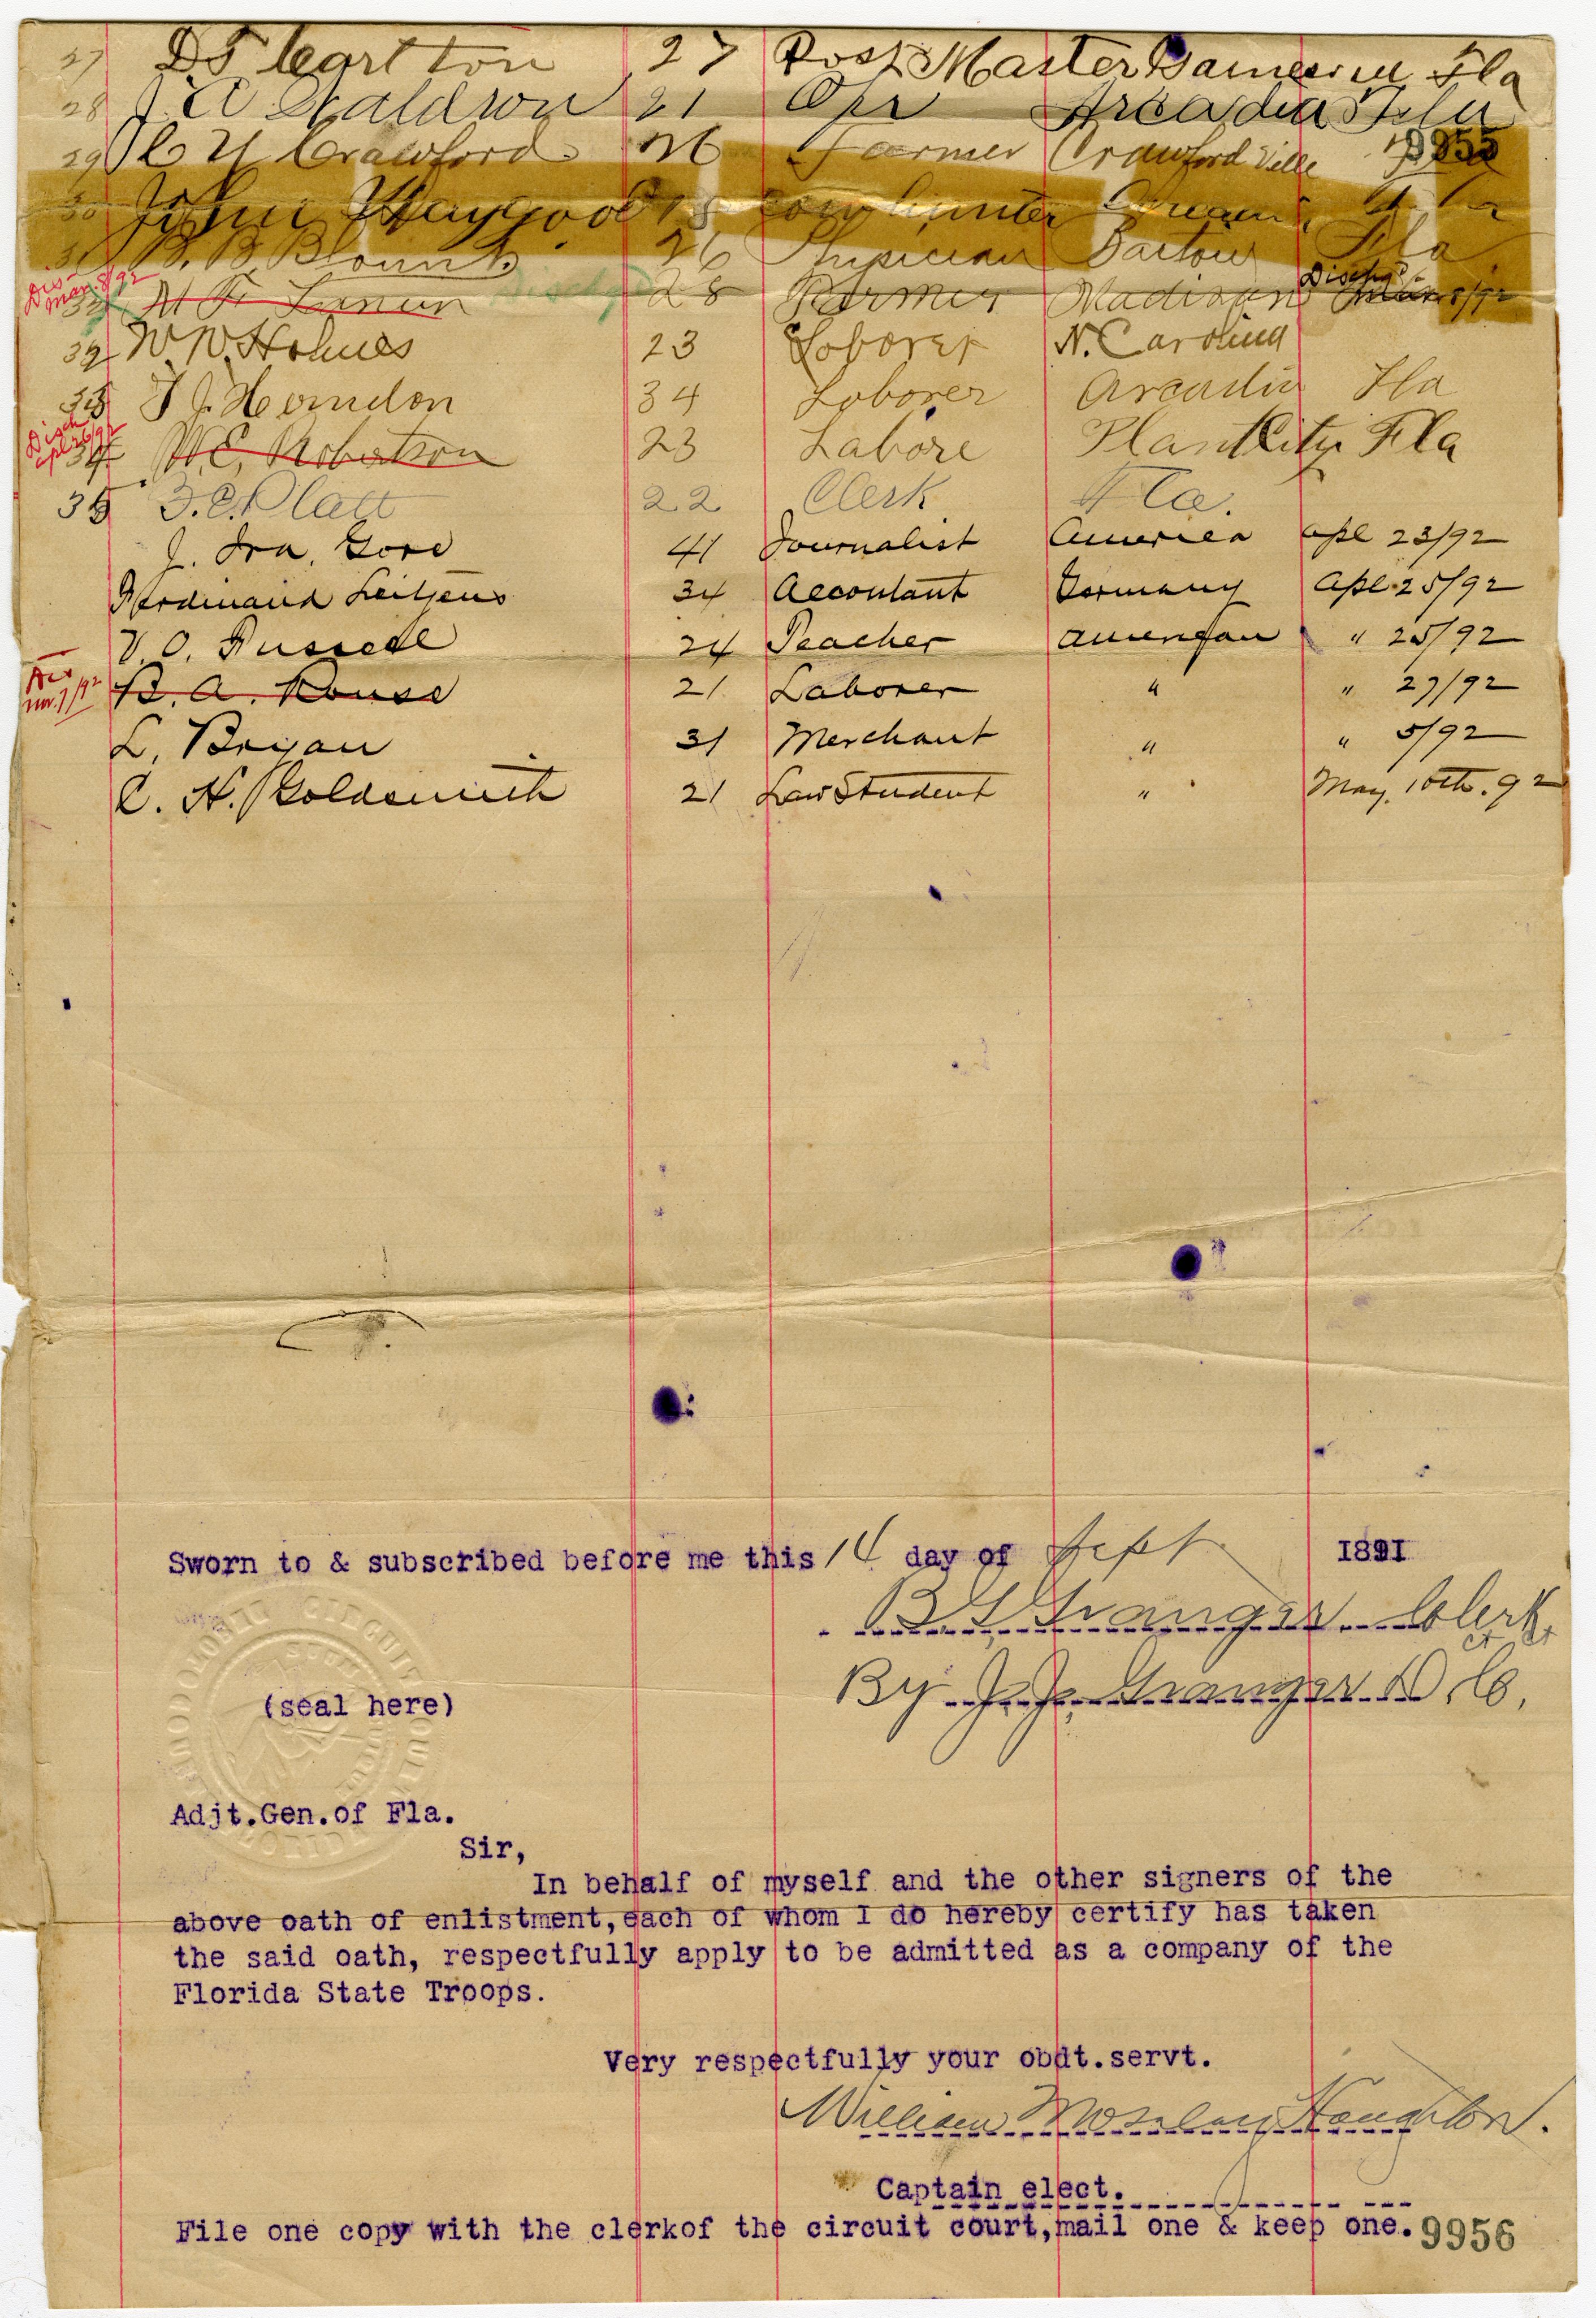 27 D T Carlton 27 Post Master Fla
28 J. A Waldron 21 Opr Arcadia Fla
29 C U Crawford 26 Farmer Crawford Ville 9955
30 John Haygood 18 cow hunter Fla
31 B. B Blount 26 Physician Bartow Fla
Dis Mar. 8/92 32 28 Farmer Madison Dischgd Mar 8/92
32 W. W. Holmes 23 Laborer N. Carolina
33 T J. Herndon 34 Loborer Arcadia Fla
Disch Apl 26/92 34 W. E. Robertson 23 Labore Plant City Fla
35 F. C. Platt 22 Clerk Fla.
J. Ira. Gore 41 Journalist America Apl 23/92
Ferdinand 34 Accontant Germany Apl. 25/92
V. O. Russell 24 Teacher American " 25/92
B. A. Rouse 21 Laborer " " 27/92
L. Bryan 31 Merchant " " 5/92
C. H. Goldsmith 21 Law Student " May. 10th. 92
Sworn to & subscribed before me this 14 day of Sept 1891
B G Granger Clerk
Ct Ct
By J. J. Granger D. C.
(seal here)
Adjt.Gen.of Fla.
Sir,
In behalf of myself and the other signers of the
above oath of enlistment, each of whom I do hereby certify has taken
the said oath, respectfully apply to be admitted as a company of the
Florida State Troops.
Very respectfully your obdt.servt.
William Moseley Houghton.
Captain elect.
File one copy with the clerkof the circuit court, mail one & keep one. 9956